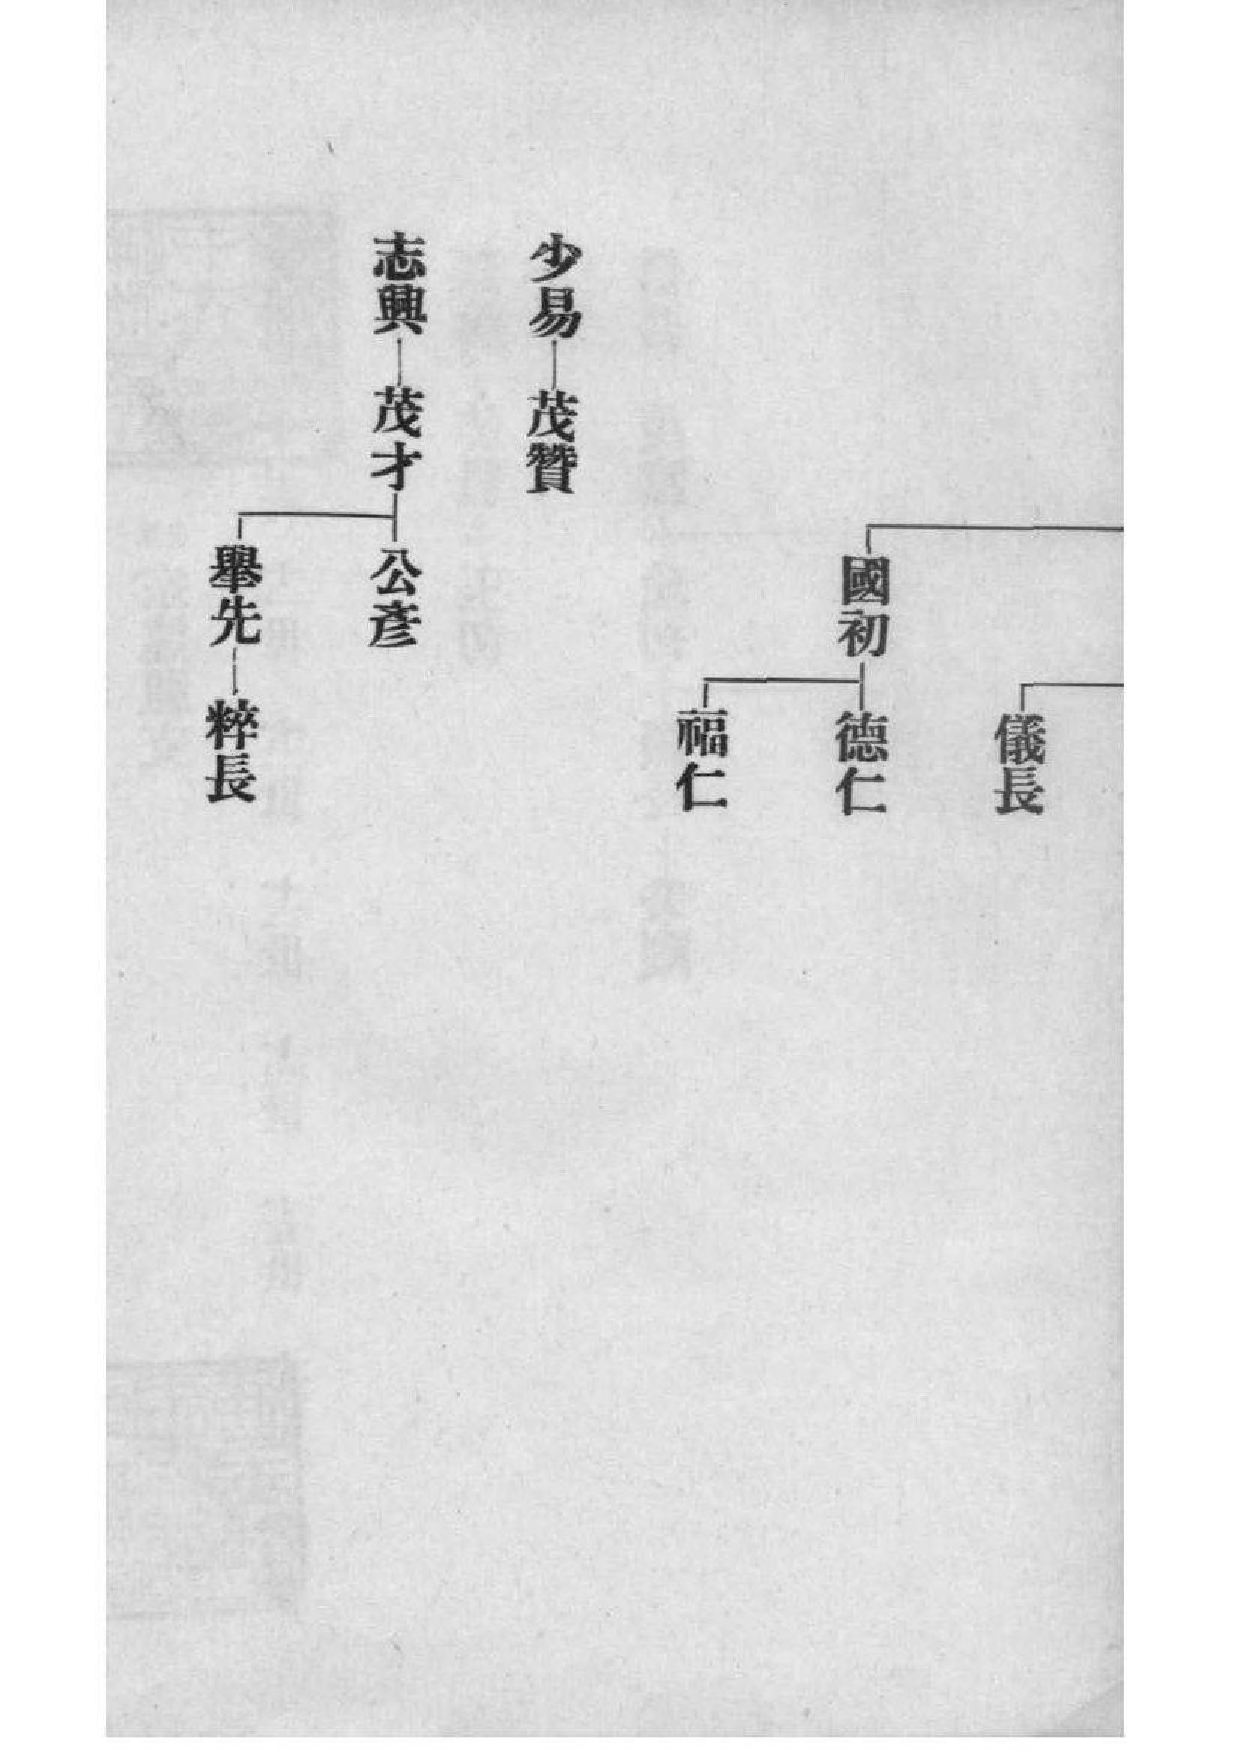 儀長
國初
德仁
福仁
少易
茂贊
志興
茂才
公彥
舉先
粹長